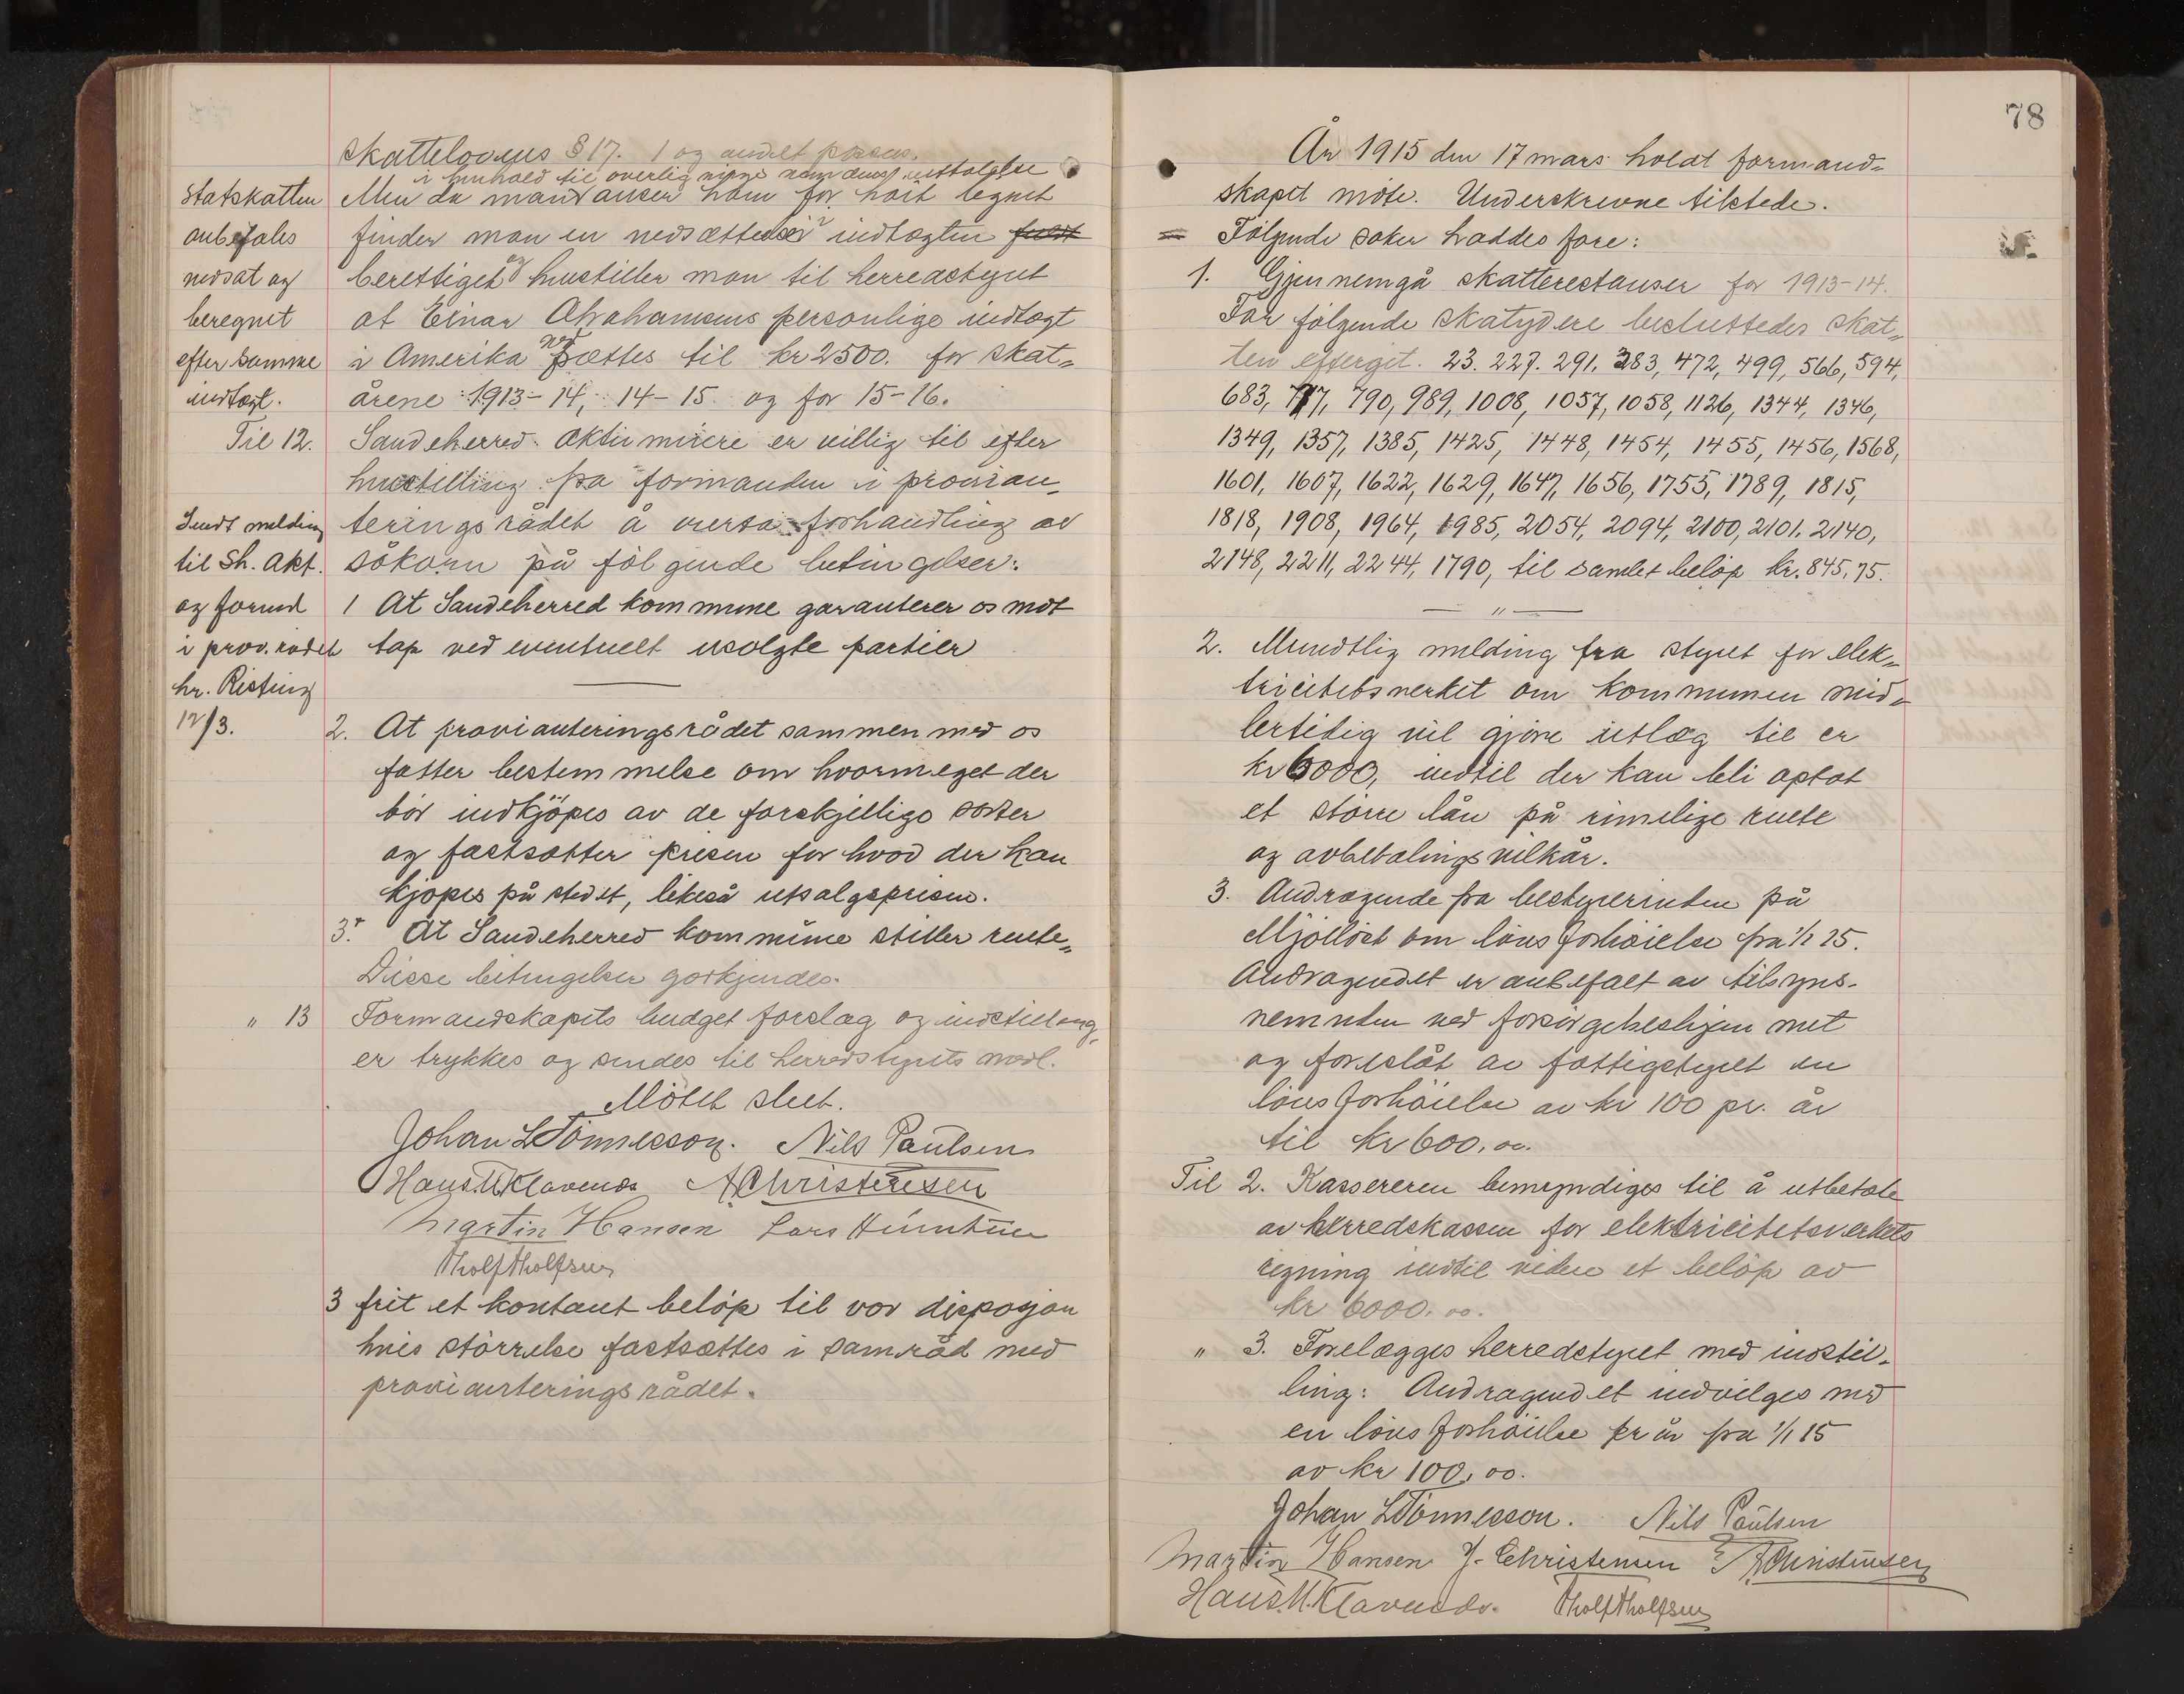 skattelovens § 17. 1 og andet passus.
i henhold til overligningsnemdens uttalelse
Men da man anser ham for høit lignet
finder man en nedsættelse i indtægten fuldt
berettiget og indstiller man til herredstyret
at Einar Abrahamsens personlige indtægt
i Amerika nedsættes til kr 2500. for skat-
årene 1913-14, 14-15 og for 15-16.
Statskatten
anbefales
nedsat og
beregnet
efter samme
indtægt.
Til 12. Sandeherred aktiemeieri er villig til efter
henstilling fra formanden i provian-
teringsrådet å overta forhandling av
såkorn på følgende betingelser:
1 At Sandeherred kommune garanterer os mot
tap ved eventuelt usolgte partier
Sendt melding
til Sh. Akt.
og formd
i prov. rådet
hr. Risting
12/3.
2. At provianteringsrådet sammen med os
fatter bestemmelse om hvormeget der
bør indkjøpes av de forskjellige sorter
og fastsætter prisen for hvad der kan
kjøpes på stedet, likeså utsalgsprisen.
3.+ At Sandeherred kommune stiller rente-
Disse betingelser godkjendes.
" 13 Formandskapets budget forslag og indstilling-
er trykkes og sendes til herredstyrets medl.
Møtet slut.
Johan L Tønnesson. Nils Paulsen
Hans M. Klavenes A Christensen
Martin Hansen Lars
Tholf Tholfsen
3 frit et kontant beløp til vor disposjon
hvis størrelse fastsættes i samråd med
provianteringsrådet.
78
År 1915 den 17 mars holdt formand-
skapet møte. Underskrevne tilstede.
= Følgende saker haddes fore:
1. Gjennemgå skatterestanser for 1913-14.
For følgende skatydere besluttedes skat-
ten efterget. 23. 227. 291. 383, 472, 499, 566, 594,
683, 717, 790, 989, 1008, 1057, 1058, 1126, 1344, 1346,
1349, 1357, 1385, 1425, 1448, 1454, 1455, 1456, 1568,
1601, 1607, 1622, 1629, 1647, 1656, 1755, 1789, 1815,
1818, 1908, 1964, 1985, 2054, 2094, 2100, 2101. 2140,
2148, 2211, 2244, 1790, til samlet beløp kr. 845,75.
— " —
2. Mundtlig melding fra styret for elek-
tricitetsverket om kommunen mid-
lertidig vil gjøre utlæg til er
kr 6000, indtil der kan bli optat
et større lån på rimelige rente
og avbetalingsvilkår.
3. Andragende fra bestyrerinden på
Mjølløst om lønsforhøielse fra 1/1 15.
Andragendet er anbefalt av tilsyns-
nemnden ved forsørgelseshjemmet
og foreslåt av fattigstyret en
lønsforhøielse av kr 100 pr. år
til kr 600.oo.
Til 2. Kassereren bemyndiges til å utbetale
av herredskassen for elektricitetsverkets
regning indtil videre et beløp av
kr 6000.oo.
" 3. Forelægges herredstyret med indstil-
ling: Andragendet indvilges med
en lønsforhøielse pr år fra 1/1 15
av kr 100,oo.
Johan L Tønnesson. Nils Paulsen
Martin Hansen J. Christensen A Christensen
Hans M. Klavenes. Tholf Tholfsen